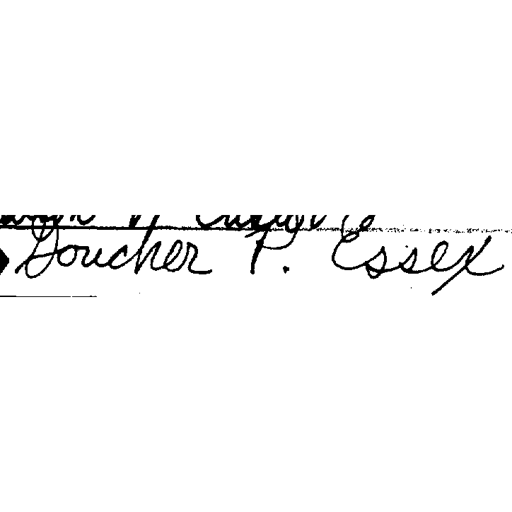 Goucher P. Essex